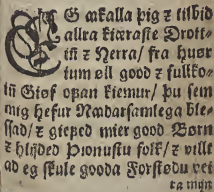 EG ákalla þig ꝛ tilbid
allra kiæraste Drott-
iñ ꝛ Herra/ fra huør
tum øll good ꝛ fullko-
iñ Giøf ofan kiemur/ þu sem
mig hefur Naadarsamlega bles-
sad/ ꝛ giefed mier good Børn
ꝛ hlijded Þionustu folk/ ꝛ villt
ad eg skule gooda Forstødu vei
ta mijn